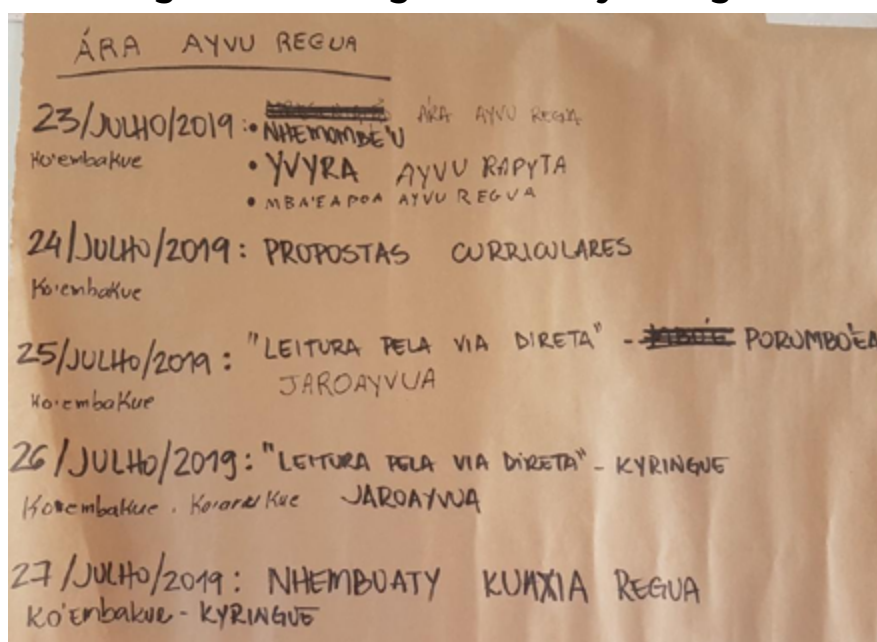 ÁRA AYVU REGUA
23/JULHO/2019: ÁRA AYVU REGUA
• NHEMOMBE'U
Ko'embakue
• YVYRA AYVU RAPYTA
• MBA'EAPOA AYVU REGUA
24/JULHO/2019: PROPOSTAS CURRICULARES
Ko'embakue
25/JULHO/2019: "LEITURA PELA VIA DIRETA" - PORUMBO'EA
JAROAYVUA
Ko'embakue
26/JULHO/2019: "LEITURA PELA VIA DIRETA" - KYRINGUE
Ko'embakue. JAROAYVUA
27/JULHO/2019: NHEMBUATY KUNXIA REGUA
KO'Embakue - KYRINGUE